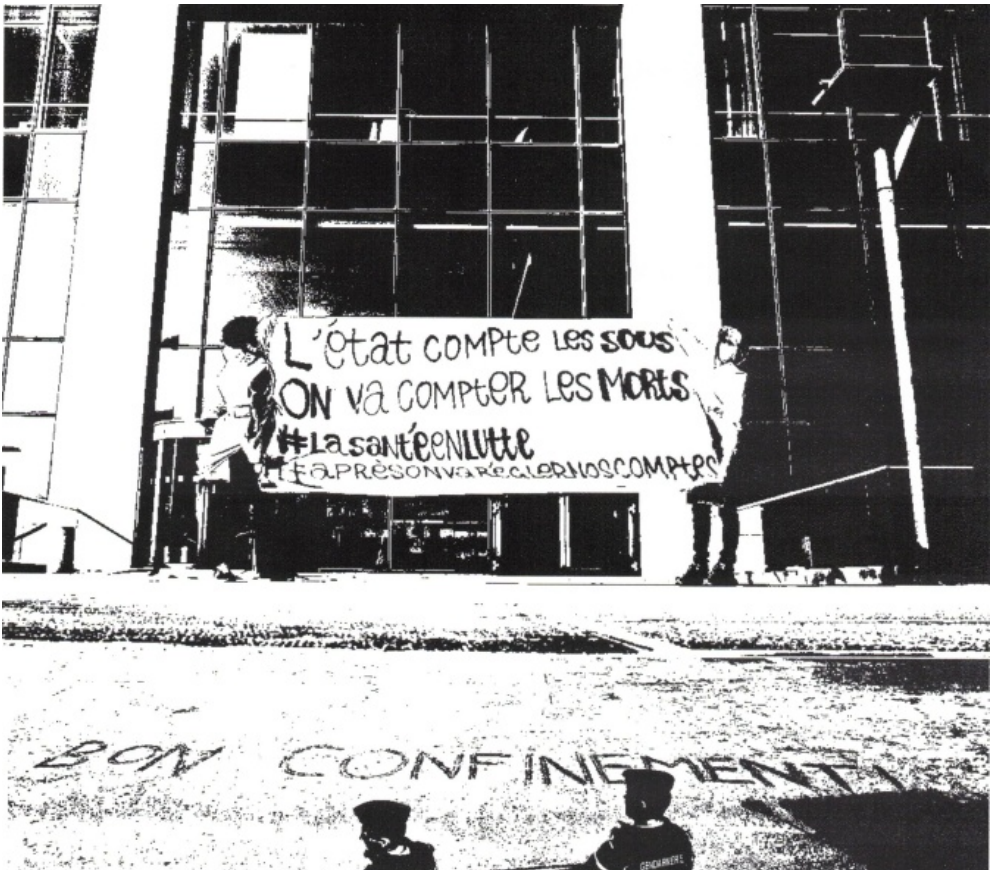 L'état compte les sous
ON va compter les MORTS
#Lasantéenlutte
#aprèsonvaréglernoscomptes
BON CONFINEMENT!
GENDARMERIE